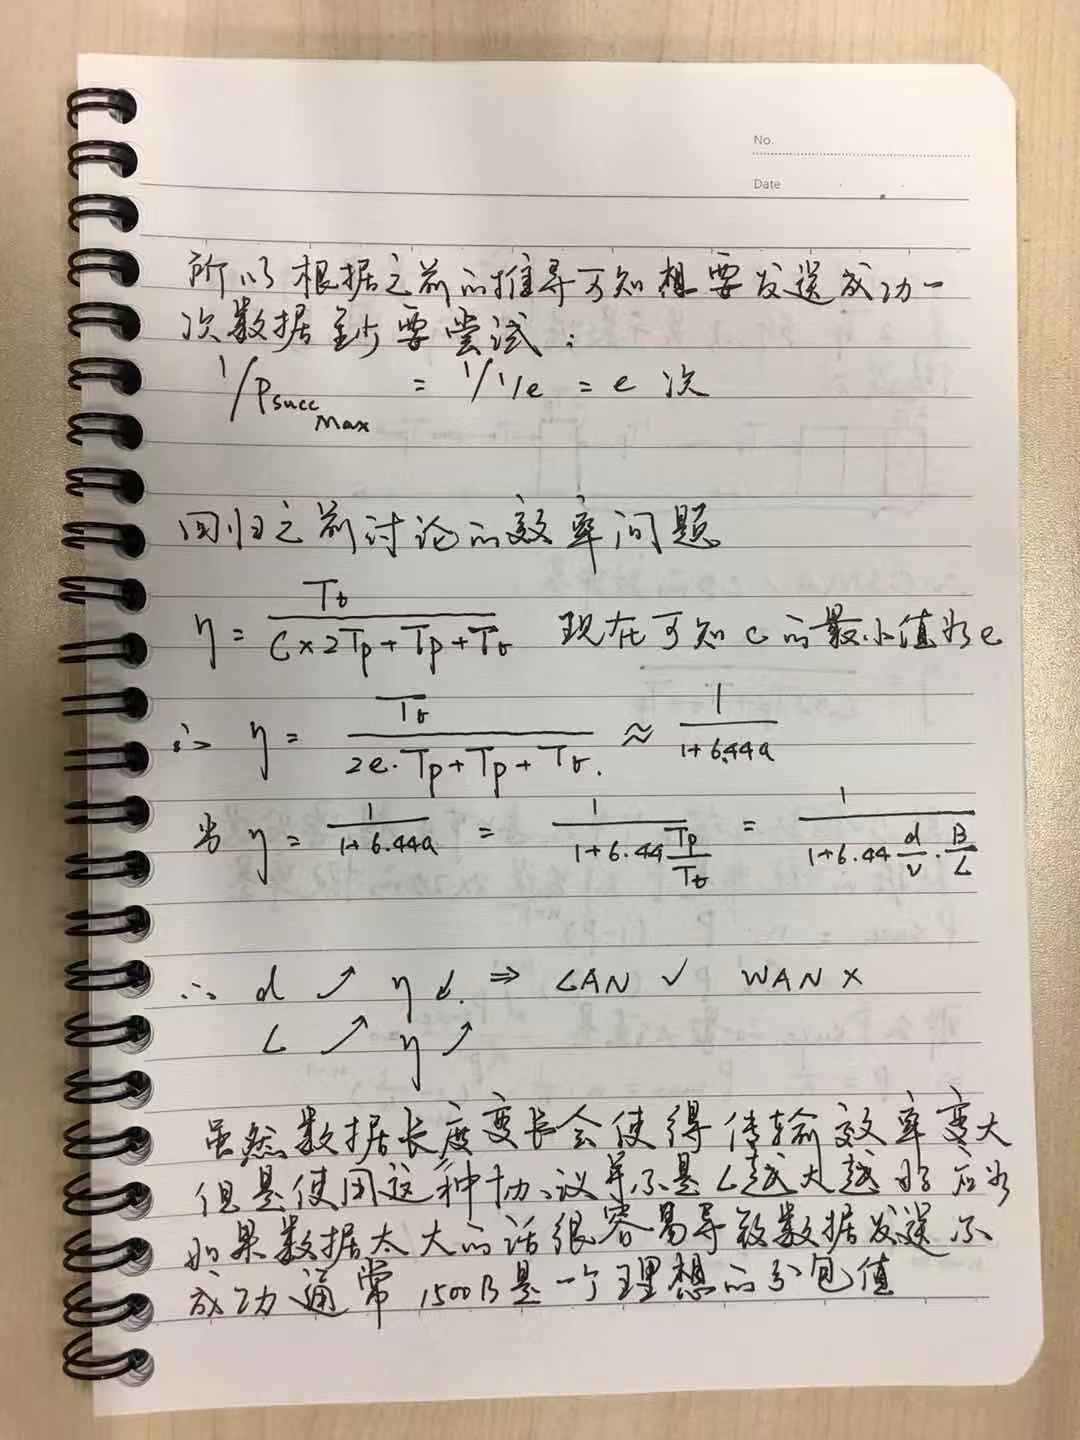 No.
Date
所以根据之前的推导可知想要发送成功一
次数据至少要尝试：
1/Psucc Max = 1/1/e = e 次
回归之前讨论的效率问题
η = Tt / (C×2Tp+Tp+Tt) 现在可知 c 的最小值为 e
∴ η = Tt / (2e·Tp+Tp+Tt) ≈ 1 / (1+6.44a)
当 η = 1 / (1+6.44a) = 1 / (1+6.44 Tp/Tt) = 1 / (1+6.44 d/v · B/L)
∴ d ↗ η ↙ ⇒ LAN ✓ WAN ×
L ↗ η ↗
虽然数据长度变长会使得传输效率变大
但是使用这种协议并不是L越大越好 应为
如果数据太大的话很容易导致数据发送不
成功 通常 1500B是一个理想的分包值